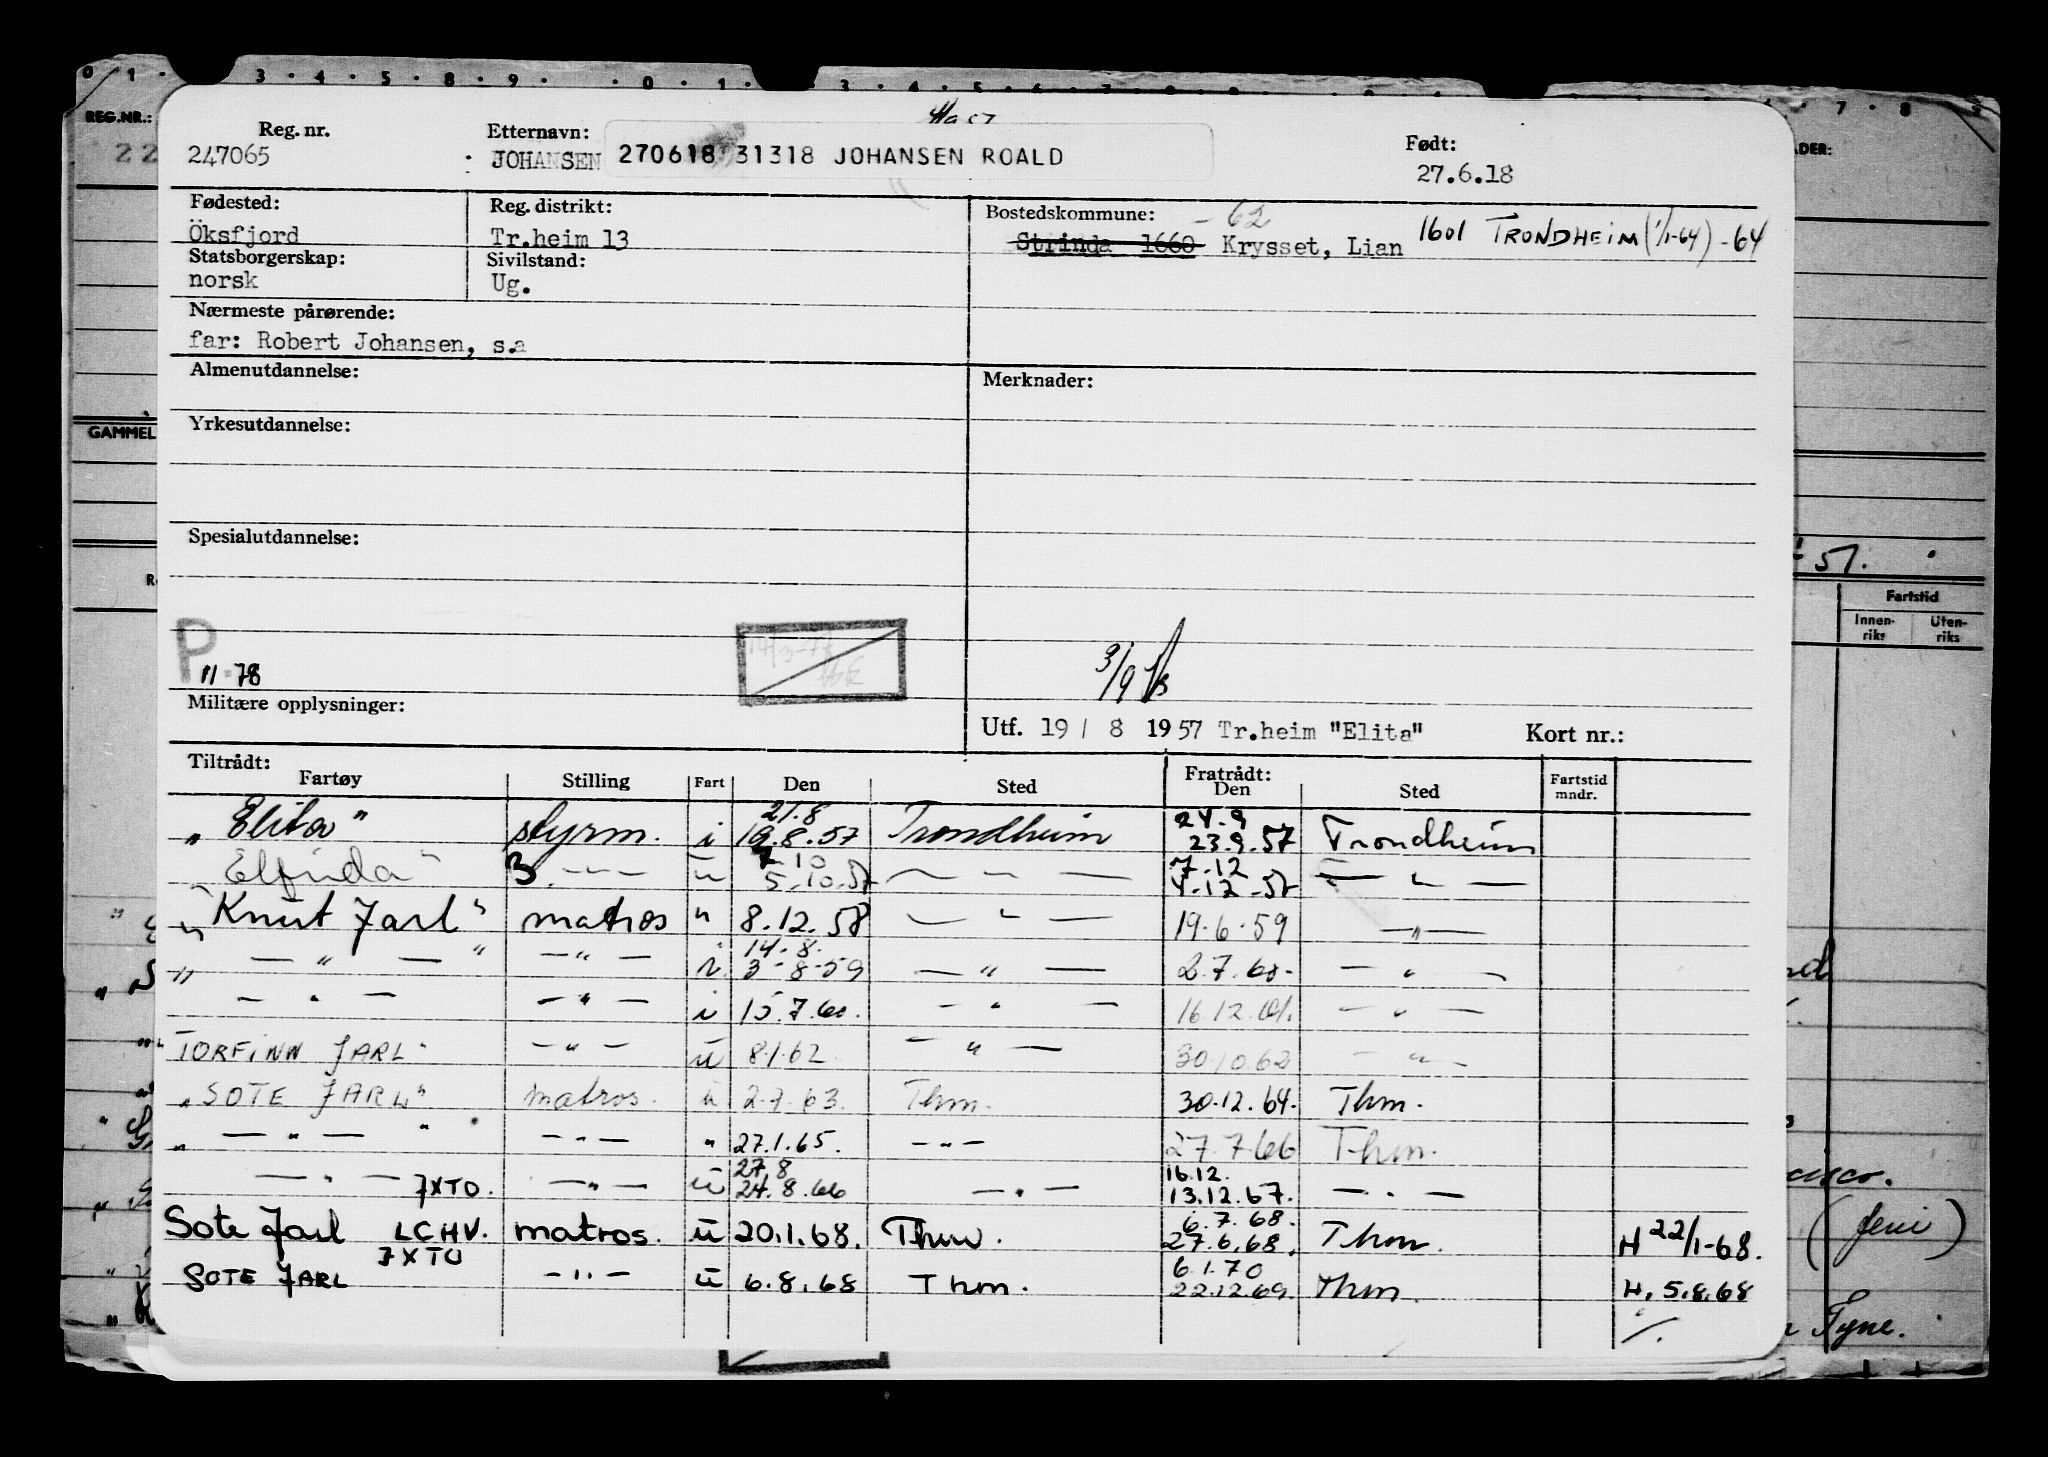 0 1 · 3 · 4 · 5 · 8 · 9 · · 0 · 1 · 3 · 4 · 5 · 6 · 7 · 7 · 8
REG.NR.:
22
GAMMEL
Reg. nr. Etternavn: Født:
247065 JOHANSEN 270618 31318 JOHANSEN ROALD 27.6.18
Fødested: Reg. distrikt: Bostedskommune: - 62
Öksfjord Tr.heim 13 Strinda 1660 Krysset, Lian 1601 TRONDHEIM (1/1-64) -64
Statsborgerskap: Sivilstand:
norsk Ug.
Nærmeste pårørende:
far: Robert Johansen, s.a
Almenutdannelse: Merknader:
Yrkesutdannelse:
Spesialutdannelse:
P
11.78 14/3-78 3/9
Militære opplysninger:
Utf. 19 / 8 1957 Tr.heim "Elita" Kort nr.:
Tiltrådt: Fratrådt:
Fartøy Stilling Fart Den Sted Den Sted Fartstid mndr.
21.8 24.9
„ Elita " styrm. i 19.8.57 Trondheim 23.9.57 Trondheim
7.10 7.12
Elfrida " 3. —"— u 5.10.57 — " — 4.12.57 — " —
„ Knut Jarl " matros " 8.12.58 — " — 19.6.59 — " —
14.8.
„ — " — " — " — i 3.8.59 — " — 2.7.60. — " —
— " — — " — i 15.7.60. — " — 16.12.61. — " —
TORFINN JARL " — " — u 8.1.62 — " — 30.10.62 — " —
„ SOTE JARL " matros. u 2.7.63. Thm. 30.12.64. Thm.
„ — " — " — " — " 27.1.65. — " — 27.7.66 Thm.
27.8 16.12.
— " — JXTO. — " — u 24.8.66 — " — 13.12.67. — " —
6.7.68.
Sote Jarl LCHV. matros. u 20.1.68. Thm. 27.6.68. Thm. H 22/1-68.
JXTO 6.1.70
SOTE JARL — " — u 6.8.68 Thm. 22.12.69. Thm. H. 5.8.68
ADER:
51.
Fartstid
Innen-
riks
Uten-
riks
cisco.
Tyne.